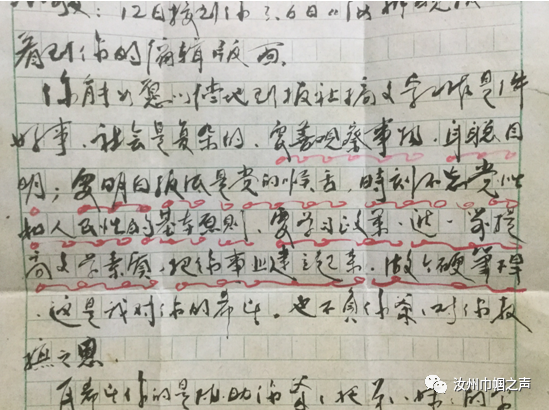 12日接到你
看到你的编辑版面。
你能如愿以偿地到报社搞文字工作是1件
好事。社会是复杂的,要善观察事物,耳聪目
明;要明白报纸是党的喉舌,时刻不忘党性
和人民性的基本原则,要学习政策,进一步提
高文学素质,把你事业建立起来,做个硬笔杆
。这是我对你的希望。也不负你
抚之恩。
再希望你的是帮助你
汝州巾帼之声